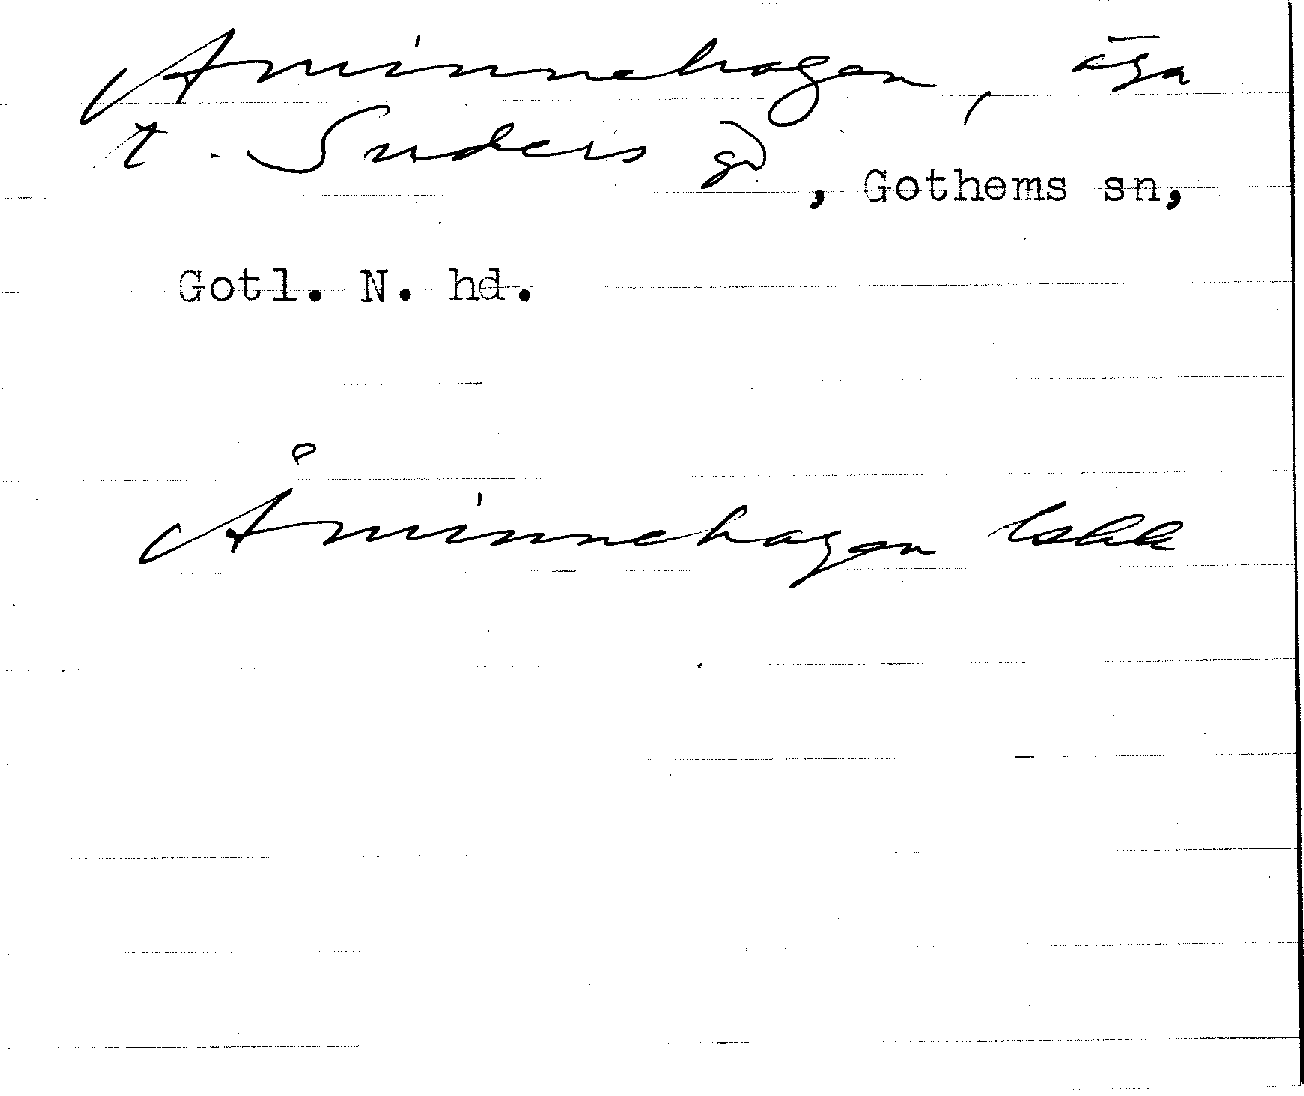 Åminnehagen, äga
t. Suders gd, Gothems sn,
Gotl. N. hd.
Åminnehagen lskk